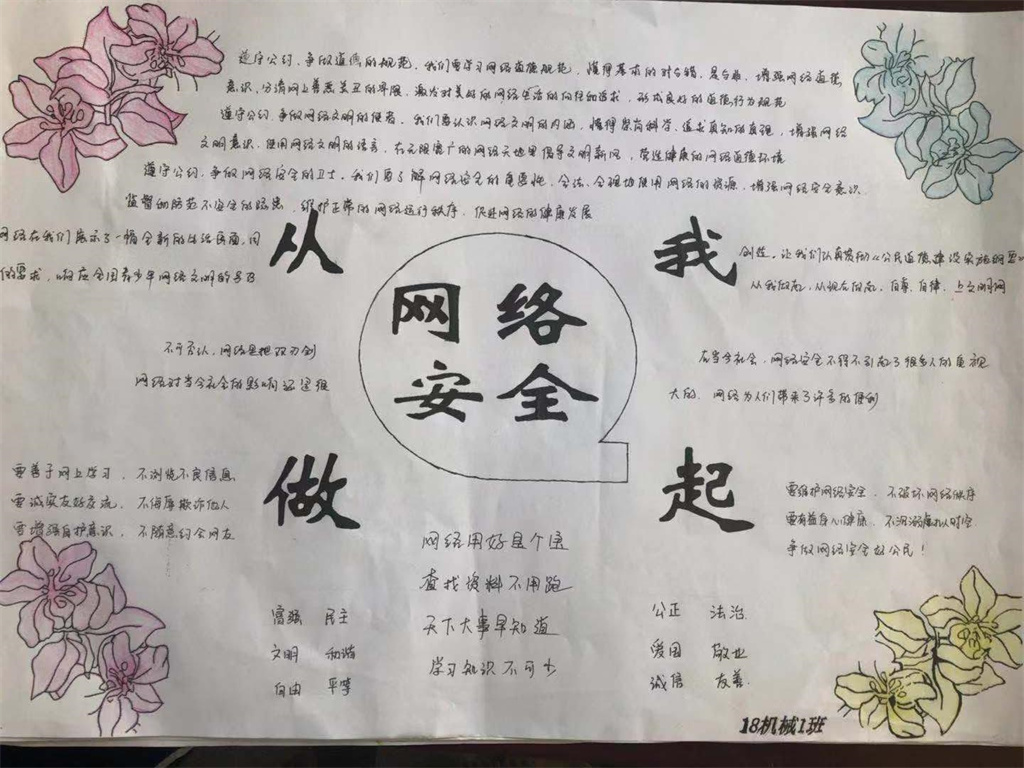 遵守公约,争做道德的规范。我们要学习网络道德规范,懂得基本的对与错、是与非,增强网络道德
意识,分清网上善恶美丑的界限,激发对美好的网络生活的向往和追求,形成良好的道德行为规范
遵守公约,争做网络文明的使者。我们要认识网络文明的内涵,懂得崇尚科学、追求真知的真理,增强网络
文明意识,使用网络文明的语言,在无限宽广的网络天地里倡导文明新风,营造健康的网络道德环境
遵守公约,争做网络安全的卫士。我们要了解网络安全的重要性,合法、合理地使用网络的资源,增强网络安全意识、
监督和防范不安全的隐患,维护正常的网络运行秩序,促进网络的健康发展
从 我
网络在我们展示了一幅全新的生活画面,同
的需求,响应全国青少年网络文明的号召
创造,让我们认真贯彻《公民道德建设实施纲要》
从我做起,从现在做起,自尊、自律,上文明网
网络
安全
不可否认,网络是把双刃剑
网络对当今社会的影响还是很
在当今社会,网络安全不得不引起了很多人的重视
大的,网络为人们带来了许多的便利
做 起
要善于网上学习,不浏览不良信息
要诚实友好交流,不侮辱欺诈他人
要增强自护意识,不随意约会网友
要维护网络安全,不破坏网络秩序
要有益身心健康,不沉溺虚拟时空
争做网络安全好公民!
网络用好是个宝
查找资料不用跑
天下大事早知道
学习知识不可少
富强 民主
文明 和谐
自由 平等
公正 法治
爱国 敬业
诚信 友善
18机械1班